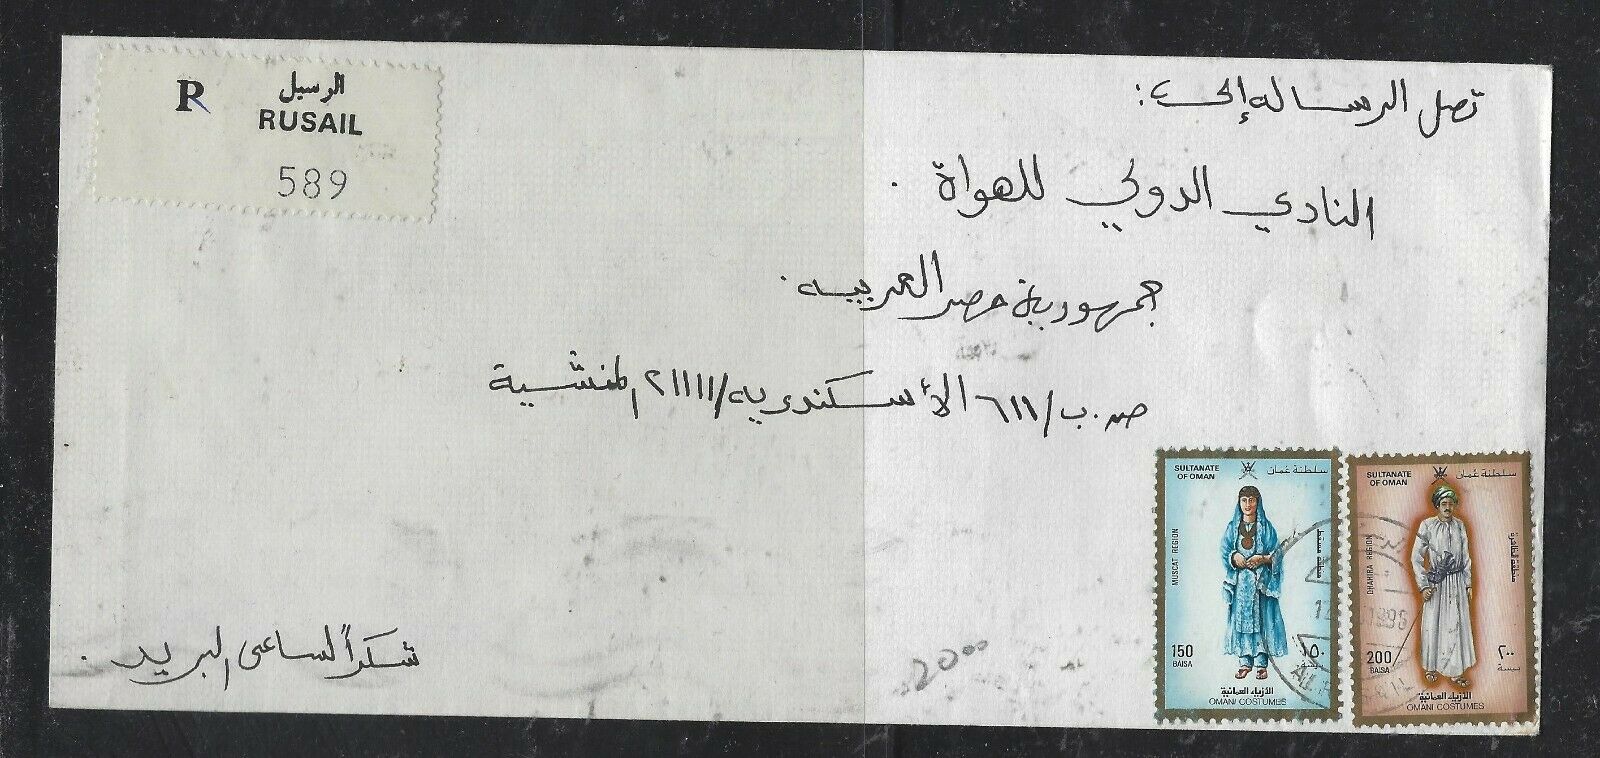 R
الرسيل
RUSAIL
589
تصل الرساله إلى :
النادي الدولي للهواة .
جمهورية مصر العربيه .
ص.ب/ ٦١١ الأسكندريه/ ٢١١١١ المنشية
شكراً لساعى البريد .
2000
SULTANATE OF OMAN
سلطنة عمان
MUSCAT REGION
منطقة مسقط
150 BAISA
١٥٠ بيسة
الأزياء العمانية
OMANI COSTUMES
SULTANATE OF OMAN
سلطنة عمان
DHAHIRA REGION
منطقة الظاهرة
200 BAISA
٢٠٠ بيسة
الأزياء العمانية
OMANI COSTUMES
1996